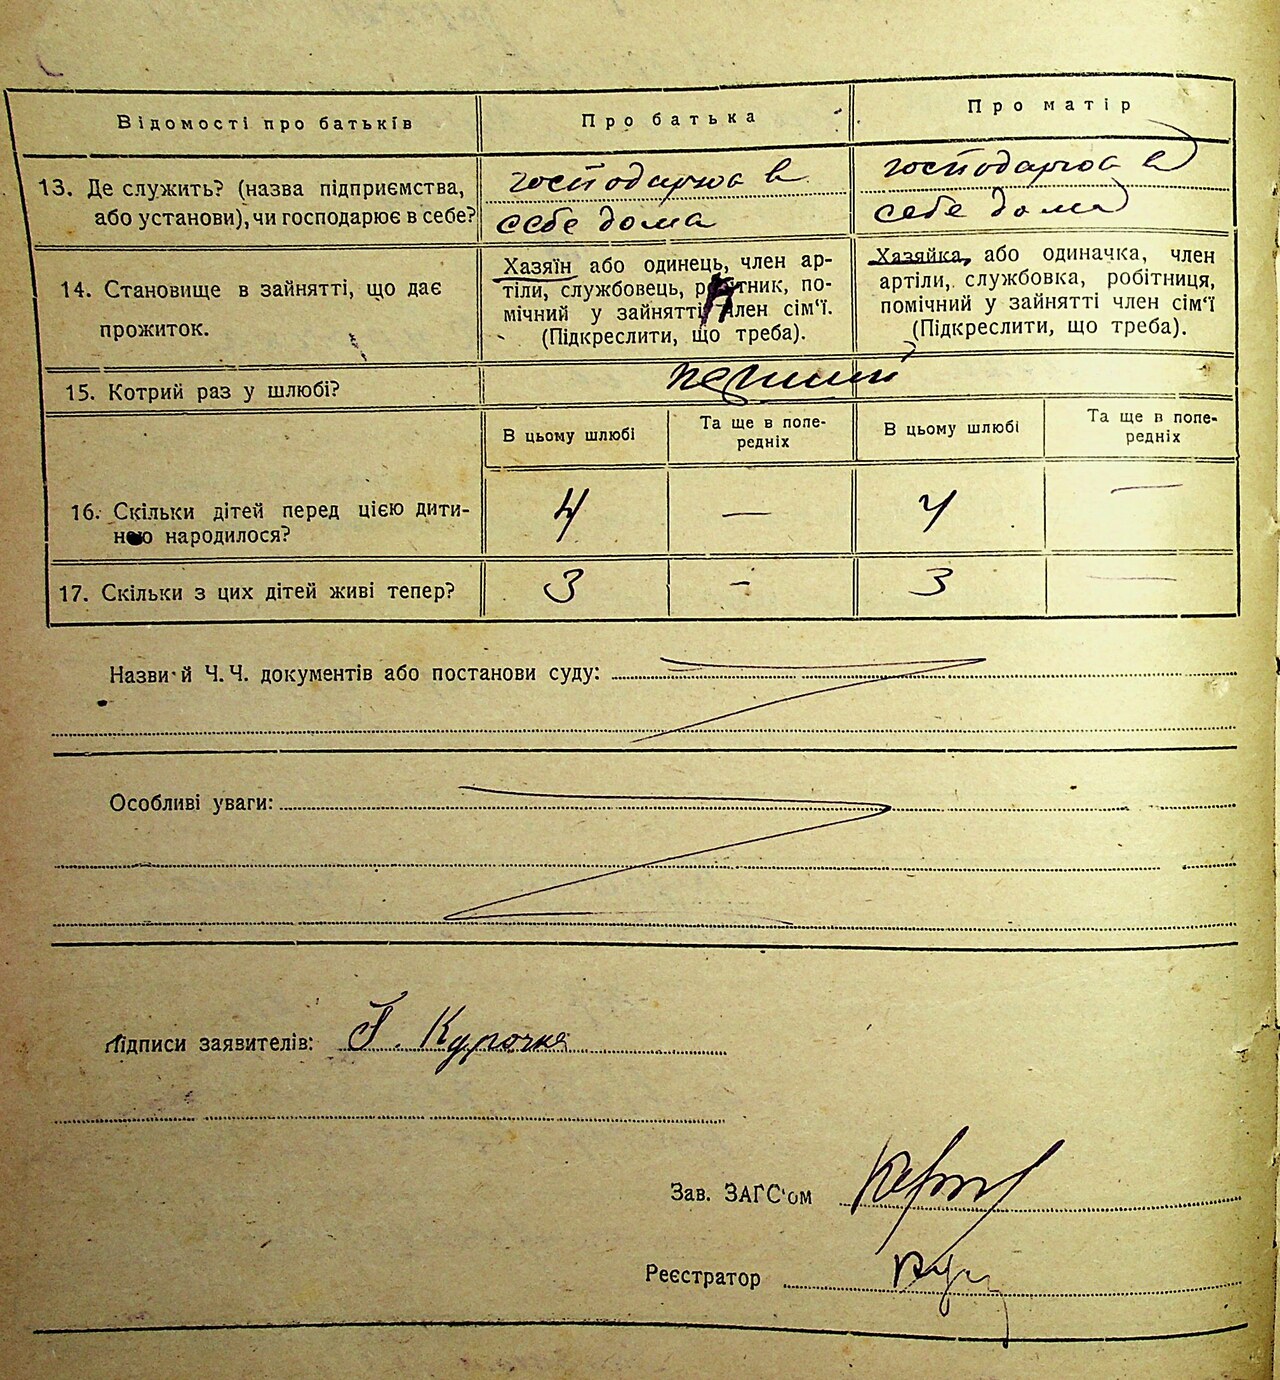 Відомості про батьків Про батька Про матір
13. Де служить? (назва підприємства, або установи), чи господарює в себе?
господарюа в
себе дома
господарюа в
себе дома
14. Становище в зайнятті, що дає прожиток.
Хазяїн або одинець, член ар-
тіли, службовець, робітник, по-
мічний у зайнятті член сім'ї.
(Підкреслити, що треба).
Хазяйка, або одиначка, член
артіли, службовка, робітниця,
помічний у зайнятті член сім'ї
(Підкреслити, що треба).
15. Котрий раз у шлюбі? перший
В цьому шлюбі Та ще в попе-
редніх В цьому шлюбі Та ще в попе-
редніх
16. Скільки дітей перед цією дити-
ною народилося? 4 — 4 —
17. Скільки з цих дітей живі тепер? 3 - 3 —
Назви й Ч.Ч. документів або постанови суду:
Особливі уваги:
Підписи заявителів: Курочка
Зав. ЗАГС'ом
Реєстратор